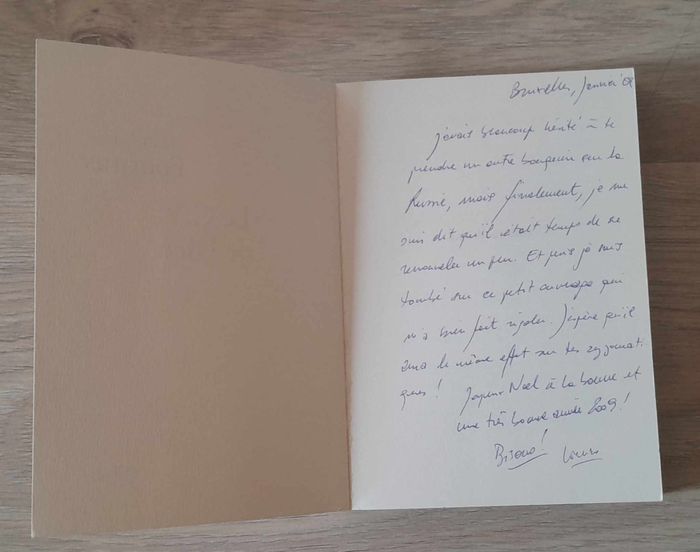 Bruxelles, Janvier 09
J'avais beaucoup hésité à te
prendre un autre bouquin sur la
Russie, mais finalement, je me
suis dit qu'il était temps de se
renouveler un peu. Et puis je suis
tombé sur ce petit ouvrage qui
m'a bien fait rigoler. J'espère qu'il
aura le même effet sur tes zygomati
ques ! Joyeux Noël à la bourre et
une très bonne année 2009 !
Bisous !